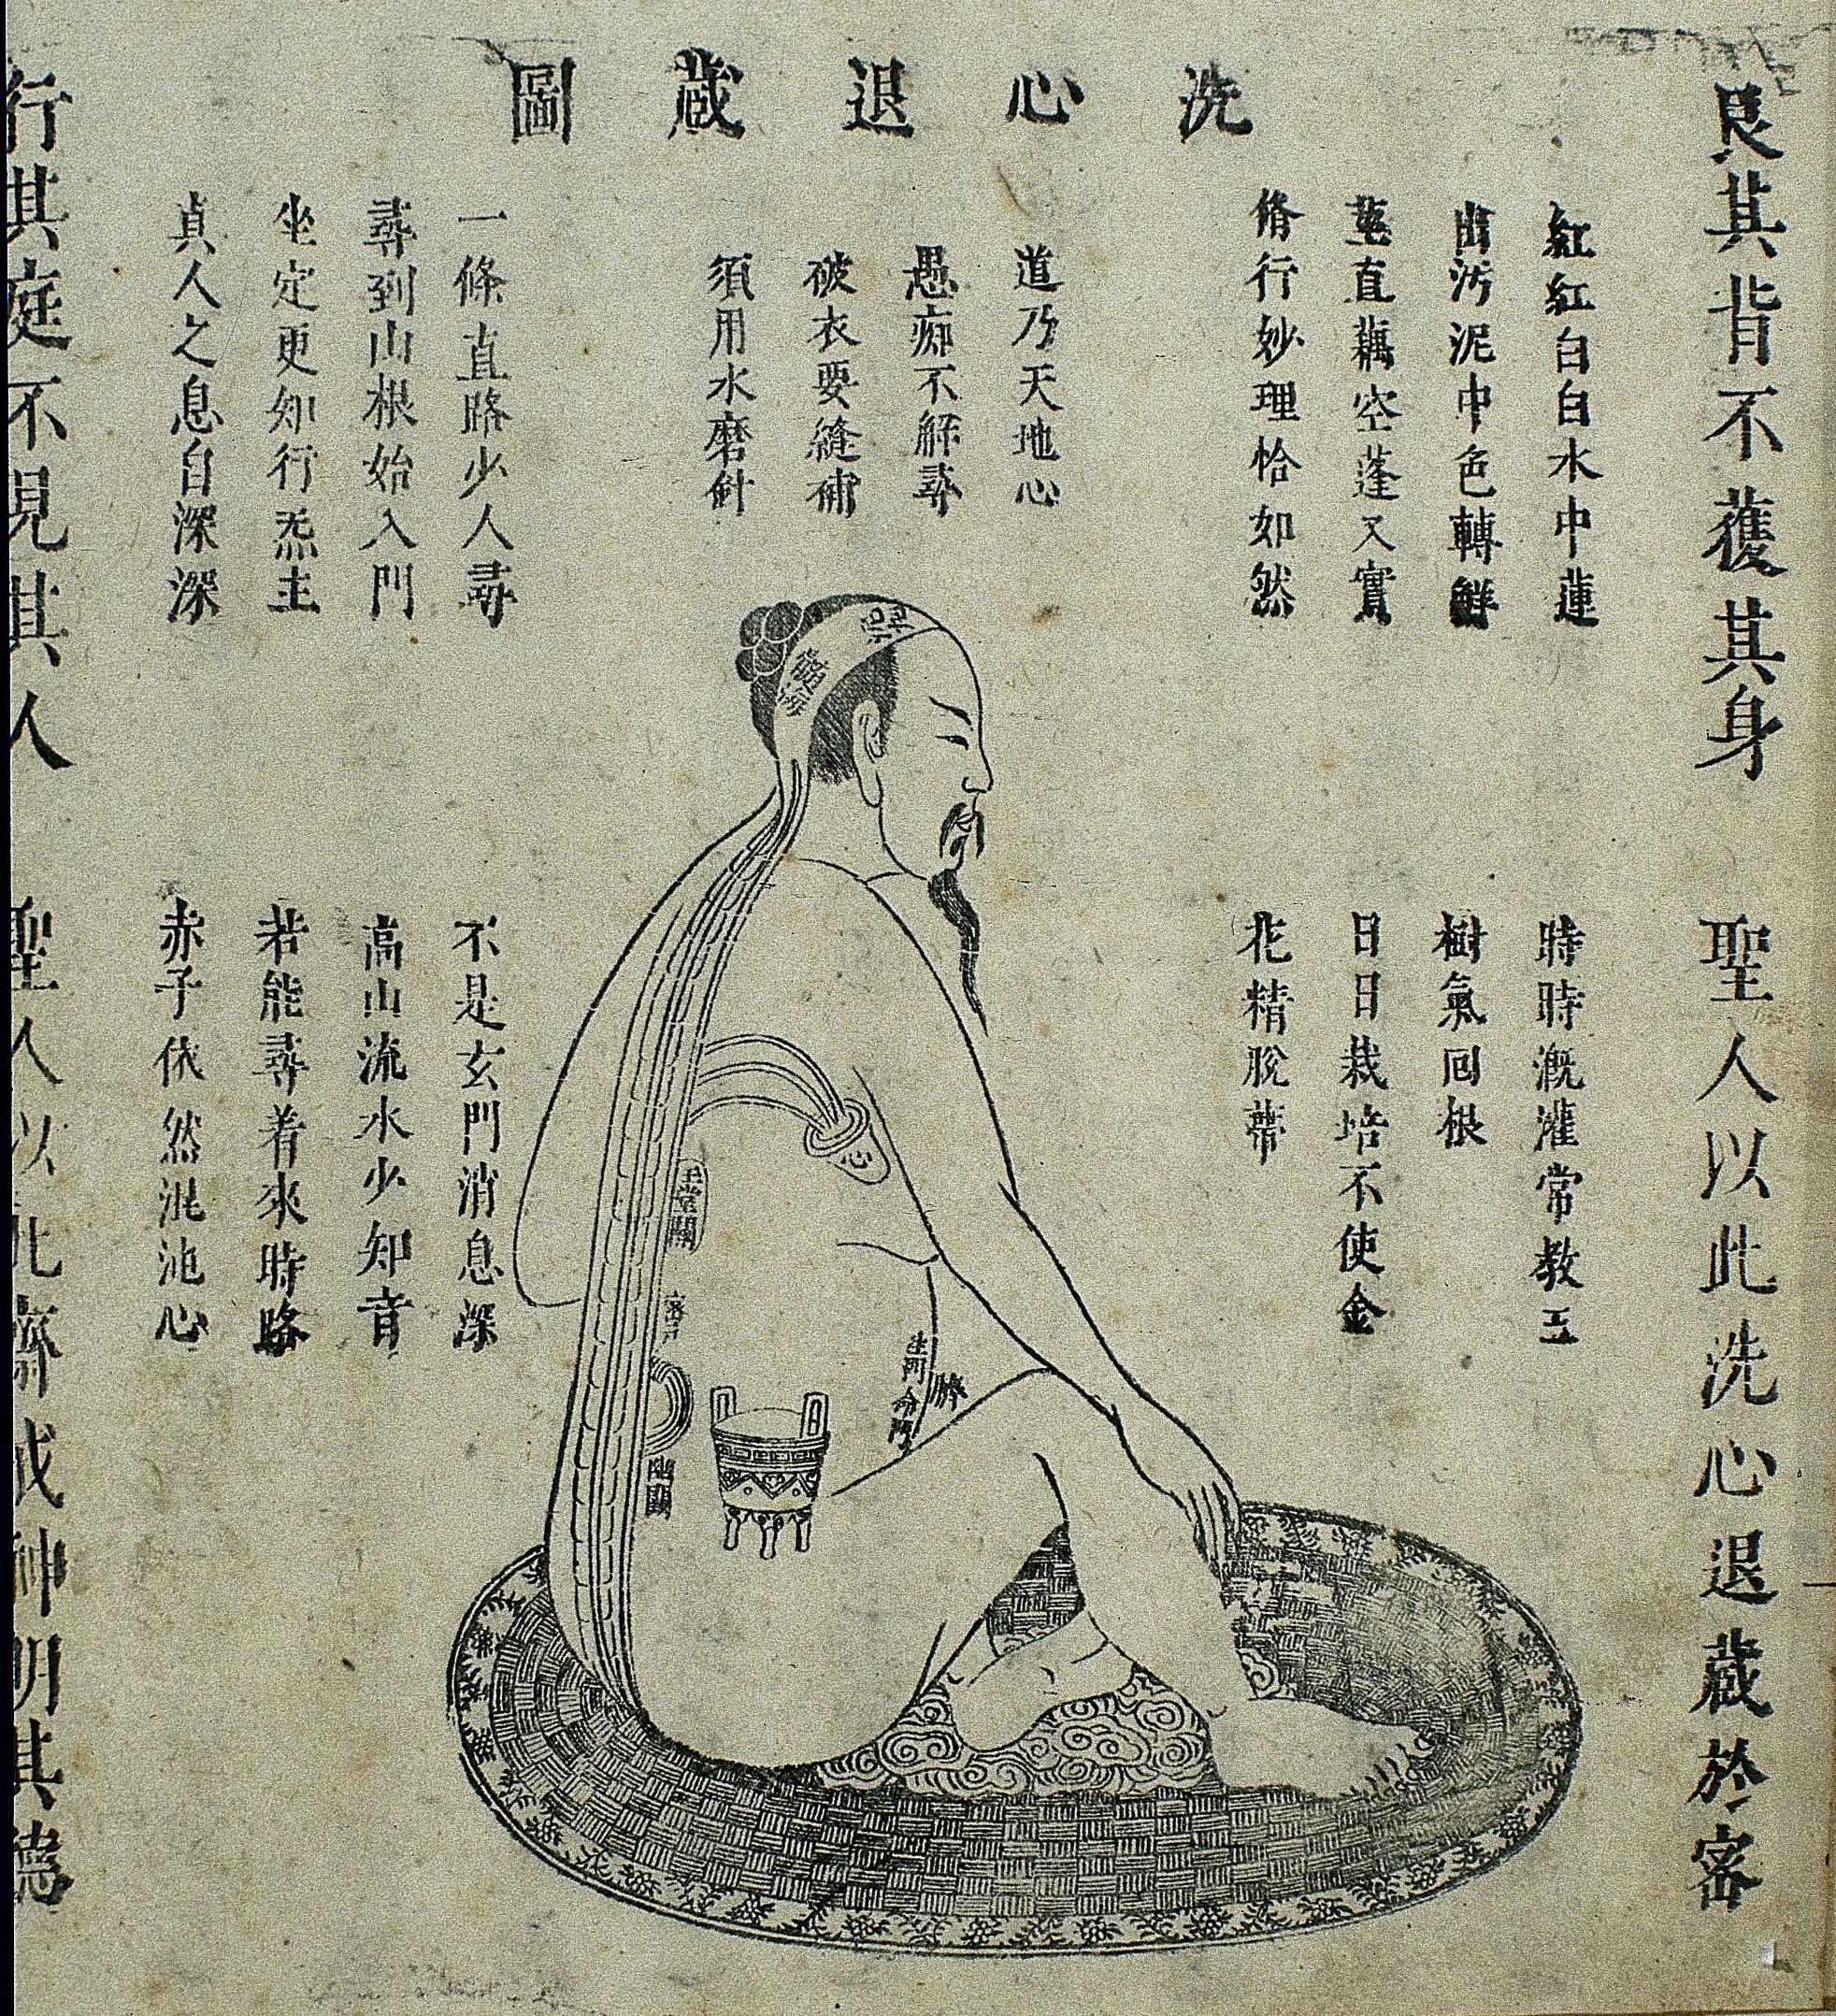 洗心退蔵圖
艮其背不獲其身
聖人以此洗心退蔵於密
紅紅白白水中蓮
出污泥中色轉鮮
莖直藕空蓬又實
脩行妙理恰如然
道乃天地心
愚痴不解尋
破衣要縫補
須用水磨針
一條直路少人尋
尋到山根始入門
坐定更知行炁主
真人之息自深深
時時溉灌常教玉
樹氣回根
日日栽培不使金
花精脫蒂
不是玄門消息深
高山流水少知音
若能尋着來時路
赤子依然混沌心
行其庭不見其人
聖人以此齋戒神明其德
髓海
心
玉堂關
密戶
幽關
生門
命門
臍